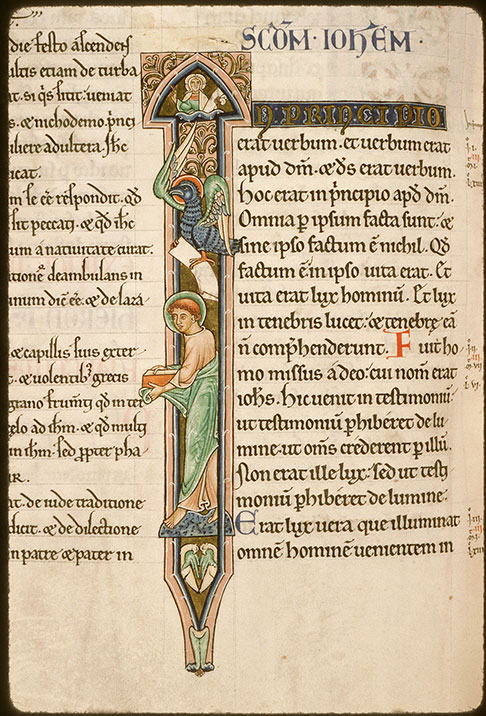 SCÐM · IOHEM ·
die festo ascendens
ultis etiam de turba
at. si q̅s sitit ueniat
s. & nichodemo p̅nci
uliere adultera. Ih̅c
icat.
m se e̅e respondit. q̅d
sit peccati. & q̅d ih̅c
um a natiuitate curat.
deambulans in
unum dic̅ e̅e. & de laza
& capillis suis exter
t. & uolentib; grecis
grano frum̅ti q̅d in ter
elo ad ih̅m. & q̅d multi
in ih̅m. sed propter pha
at. de iude traditione
dicit. & de dilectione
n patre & pater in
N PRINCIPIO
erat uerbum. et uerbum erat
apud dm̅. & d̅s erat uerbum.
Hoc erat in p̅ncipio apd̅ dm̅.
Omnia p̅ ipsum facta sunt. &
sine ipso factum e̅ nichil. Q̅d
factum e̅ in ipso uita erat. Et
uita erat lux hominu̅. Et lux
in tenebris lucet. & tenebre ea̅
n̅ comp̅henderunt. Fuit ho
mo missus a deo. cui nom̅ erat
ioh̅s. Hic uenit in testimoniu̅.
ut testimoniu̅ p̅hiberet de lu
mine. ut om̅s crederent p̅ illu̅.
Non erat ille lux. sed ut testi
moniu̅ p̅hiberet de lumine.
Erat lux uera que illuminat
omne̅ homine̅ uenientem in